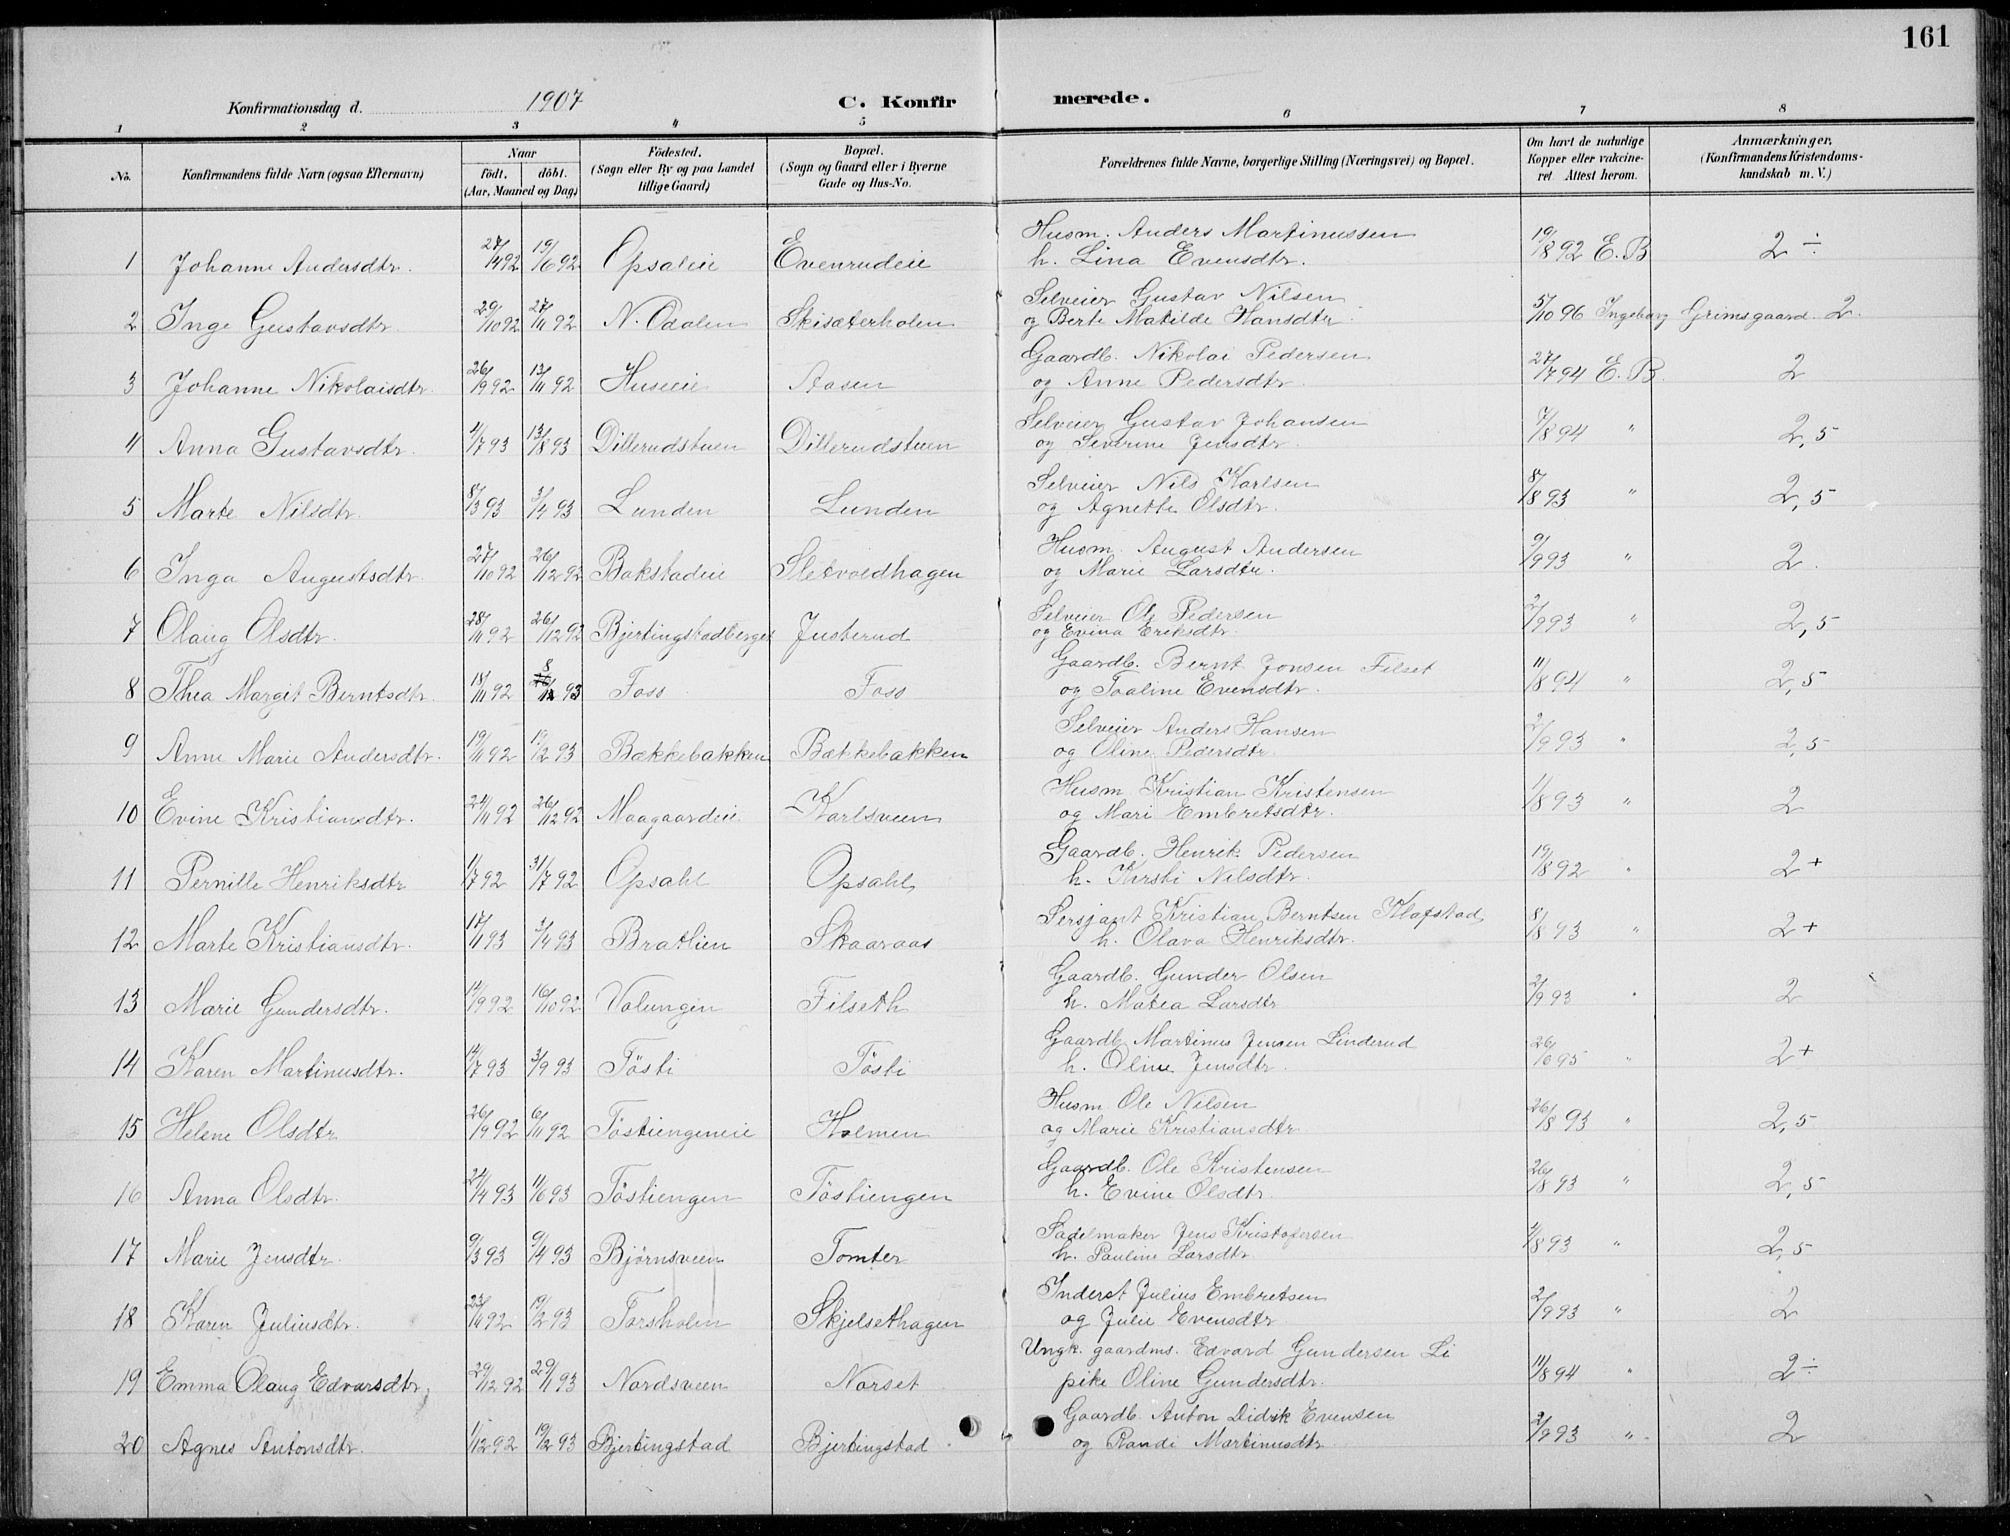 161
Konfirmationsdag d. 1907 C. Konfirmerede.
1 2 3 4 5 6 7 8
No. Konfirmandens fulde Navn (ogsaa Efternavn) Naar födt. döbt. (Aar, Maaned og Dag) Födested. (Sogn eller By og paa Landet tillige Gaard) Bopæl. (Sogn og Gaard eller i Byerne Gade og Hus-No. Forældrenes fulde Navne, borgerlige Stilling (Næringsvei) og Bopæl. Om havt de naturlige Kopper eller vakcineret Attest herom. Anmærkninger, (Konfirmandens Kristendomskundskab m. V.)
Husm. Anders Martinussen
1 Johanne Andersdtr. 27/4 92 19/6 92 Opsaleie Evenrudeie h. Lina Evensdtr. 19/8 92 E. B 2 ÷
Selveier Gustav Nilsen
2 Inge Gustavsdtr. 29/10 92 27/11 92 N. Odalen Skisæterholen og Berte Matilde Hansdtr. 5/10 96 Ingeborg Grimsgaard 2.
Gaardb. Nikolai Pedersen
3 Johanne Nikolaisdtr. 26/9 92 13/11 92 Huseie Aasen og Anne Pedersdtr. 27/7 94 E. B. 2
Selveier Gustav Johansen
4 Anna Gustavsdtr. 4/7 93 13/8 93 Dillerudstuen Dillerudstuen og Severine Jensdtr. 7/8 94 " 2,5
Selveier Nils Karlsen
5 Marte Nilsdtr. 8/3 93 3/4 93 Lunden Lunden og Agnette Olsdtr. 8/8 93 " 2,5
Husm. August Andersen
6 Inga Augustsdtr. 27/10 92 26/12 92 Bakstadeie Sletvoldhagen og Marie Larsdtr. 9/9 93 " 2.
Selveier Ole Pedersen
7 Olaug Olsdtr. 28/11 92 26/12 92 Bjertingstadberget Justerud og Evina Eriksdtr. 2/9 93 " 2,5
Gaardb. Bernt Jonsen Filset
8 Thea Margit Berntsdtr. 18/11 92 93 Foss Foss og Paaline Evensdtr. 11/8 94 " 2,5
Selveier Anders Hansen
9 Anne Marie Andersdtr. 19/11 92 19/2 93 Bækkebakken Bækkebakken og Oline Pedersdtr. 2/9 93 " 2,5
Husm. Kristian Kristensen
10 Evine Kristiansdtr. 24/11 92 26/12 92 Maagaardeie Karlsveen og Mari Embretsdtr. 1/8 93 " 2
Gaardb. Henrik Pedersen
11 Pernille Henriksdtr. 1/7 92 31/7 92 Opsahl Opsahl h. Kirsti Nilsdtr. 19/8 92 " 2+
Sersjant Kristian Berntsen Klofstad
12 Marte Kristiansdtr. 17/1 93 3/4 93 Bratlien Skaaraas h. Olava Henriksdtr. 8/8 93 " 2+
Gaardb. Gunder Olsen
13 Marie Gundersdtr. 14/9 92 16/10 92 Volungen Filseth h. Matea Larsdtr. 2/9 93 " 2
Gaardb. Martinus Jensen Linderud
14 Karen Martinusdtr. 14/7 93 3/9 93 Tösti Tösti h. Oline Jensdtr. 26/6 95 " 2+
Husm. Ole Nilsen
15 Helene Olsdtr. 26/9 92 6/11 92 Töstiengeneie Holmen og Marie Kristiansdtr. 26/8 93 " 2,5
Gaardb. Ole Kristensen
16 Anna Olsdtr. 24/4 93 11/6 93 Töstiengen Töstiengen h. Evine Olsdtr. 26/8 93 " 2,5
Sadelmaker Jens Kristofersen
17 Marie Jensdtr. 9/3 93 9/4 93 Bjørnsveen Tomter h. Pauline Larsdtr. 4/8 93 " 2,5
Inderst Julius Embretsen
18 Karen Juliusdtr. 23/11 92 19/2 93 Forsholen Skjelsethagen og Julie Evensdtr. 2/9 93 " 2
Ungk. gaardms. Edvard Gundersen Li
19 Emma Olaug Edvarsdtr. 29/12 92 29/1 93 Nordsveen Norset pike Oline Gundersdtr. 11/8 94 " 2 ÷
Gaardb. Anton Didrik Evensen
20 Agnes Antonsdtr. 1/12 92 19/2 93 Bjertingstad Bjertingstad og Randi Martinusdtr. 2/9 93 " 2